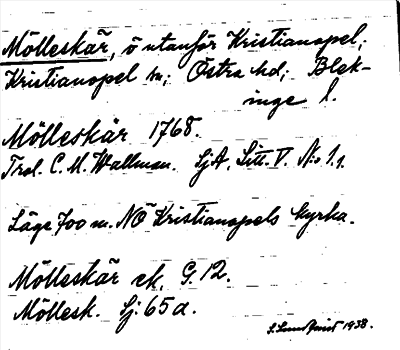 Mölleskär, ö utanför Kristianopel;
Kristianopel sn; Östra hd; Blek-
inge l.
Mölleskär 1768.
Trol. C. M. Wallman. SjA, Litt. V. N:o 1.
Läge 700 m. NÖ Kristianopels kyrka.
Mölleskär ek. G. 12.
Möllesk. Sj. 65 a.
1938.